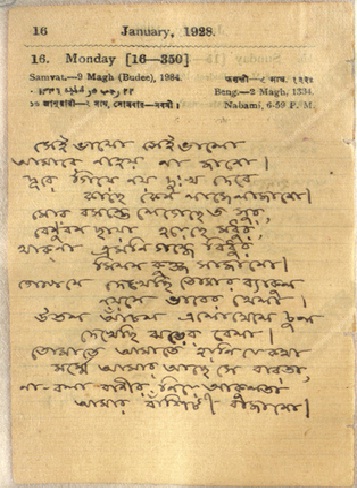 16 January, 1928.
16. Monday [16—350]
Samvat.—9 Magh (Budee), 1984.
Beng.—2 Magh, 1334.
১৬ জানুয়ারী—২ মাঘ, সোমবার—নবমী। Nabami, 6-50 P. M.
সেই ভালো সেই ভালো
আমারে নাহয় না জানো।
দূরে গিয়ে নয় দুঃখ দেবে
কাছে কেন লাজে লাজানো।
মোর বসন্তে লেগেছে ত সুর,
বেণুবন ছায়া হয়েছে মধুর,
থাক্‌না এমনি গন্ধে বিধুর
মিলন কুঞ্জ সাজানো।
গোপনে দেখেছি তোমার ব্যাকুল
নয়নে ভাবের খেলা।
উতল আঁচল এলোথেলো চুল
দেখেছি ঝড়ের বেলা।
তোমাতে আমাতে হয়নি যে কথা
মর্ম্মে আমার আছে সে বারতা,
না-বলা বাণীর নিয়ে আকুলতা
আমার বাঁশিটি বাজানো।